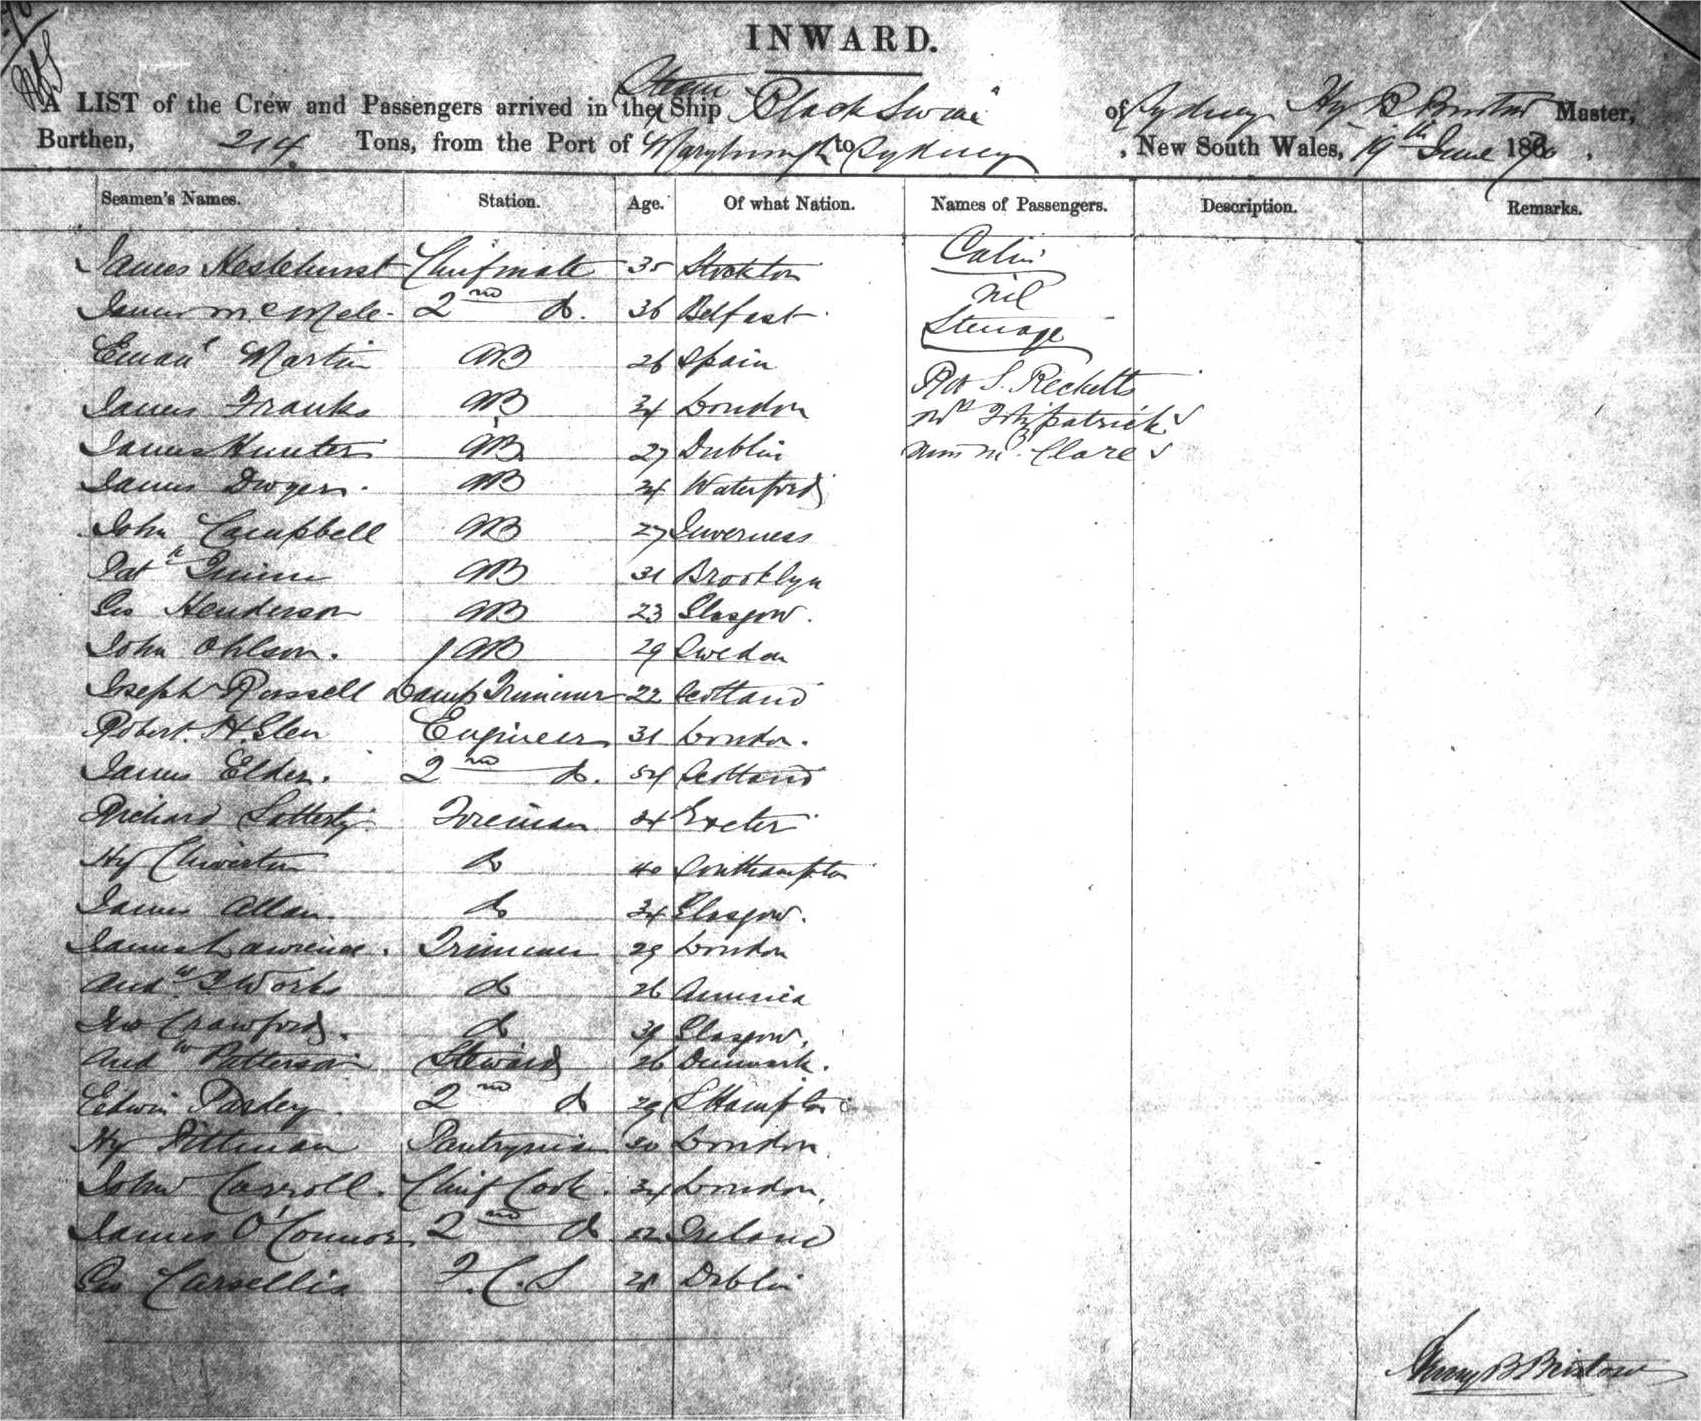 INWARD.
A LIST of the Crew and Passengers arrived in the Steam Ship "Black Swan" of Sydney Hy. B Bristow Master,
Burthen, 214 Tons, from the Port of Maryborough to Sydney, New South Wales, 19th June 1870.
Seamen's Names. Station. Age. Of what Nation. Names of Passengers. Description. Remarks.
Cabin
James Heslehurst Chief mate 35 Stockton
nil
James 2nd do. 36 Belfast
Steerage
Emanl Martin AB 26 Spain
Recketts
James Franks AB 34 London
Mrs Fitzpatrick
James Hunter AB 27 Dublin
Clare
James Dwyer. AB 34 Waterford
John Campbell AB 27 Inverness
Patk Quinn AB 31 Brooklyn
Geo Henderson AB 23 Glasgow.
John Ohlson. AB 29 Sweden
Joseph Russell Lamp Trimmer 22 Scotland
Robert. H. Glen Engineer 31 London.
James Elder. 2nd do. 54 Scotland
Richard Fireman 24 Exeter
Hy do 40 Southampton
James Allan. do 34 Glasgow.
James Lawrence. Trimmer 29 London
Andw. Works do 26 America
Jno Crawford. do 39 Glasgow.
Andw Patterson Steward 26 Denmark.
Edwin Pasley 2nd do 29 SHampton
Hy Pittman Pantryman 20 London
John Carroll. Chief Cook. 34 London.
James O'Connor 2nd do 52 Ireland
Geo Carvellis F.C.S 28 Dublin
Henry B Bristow